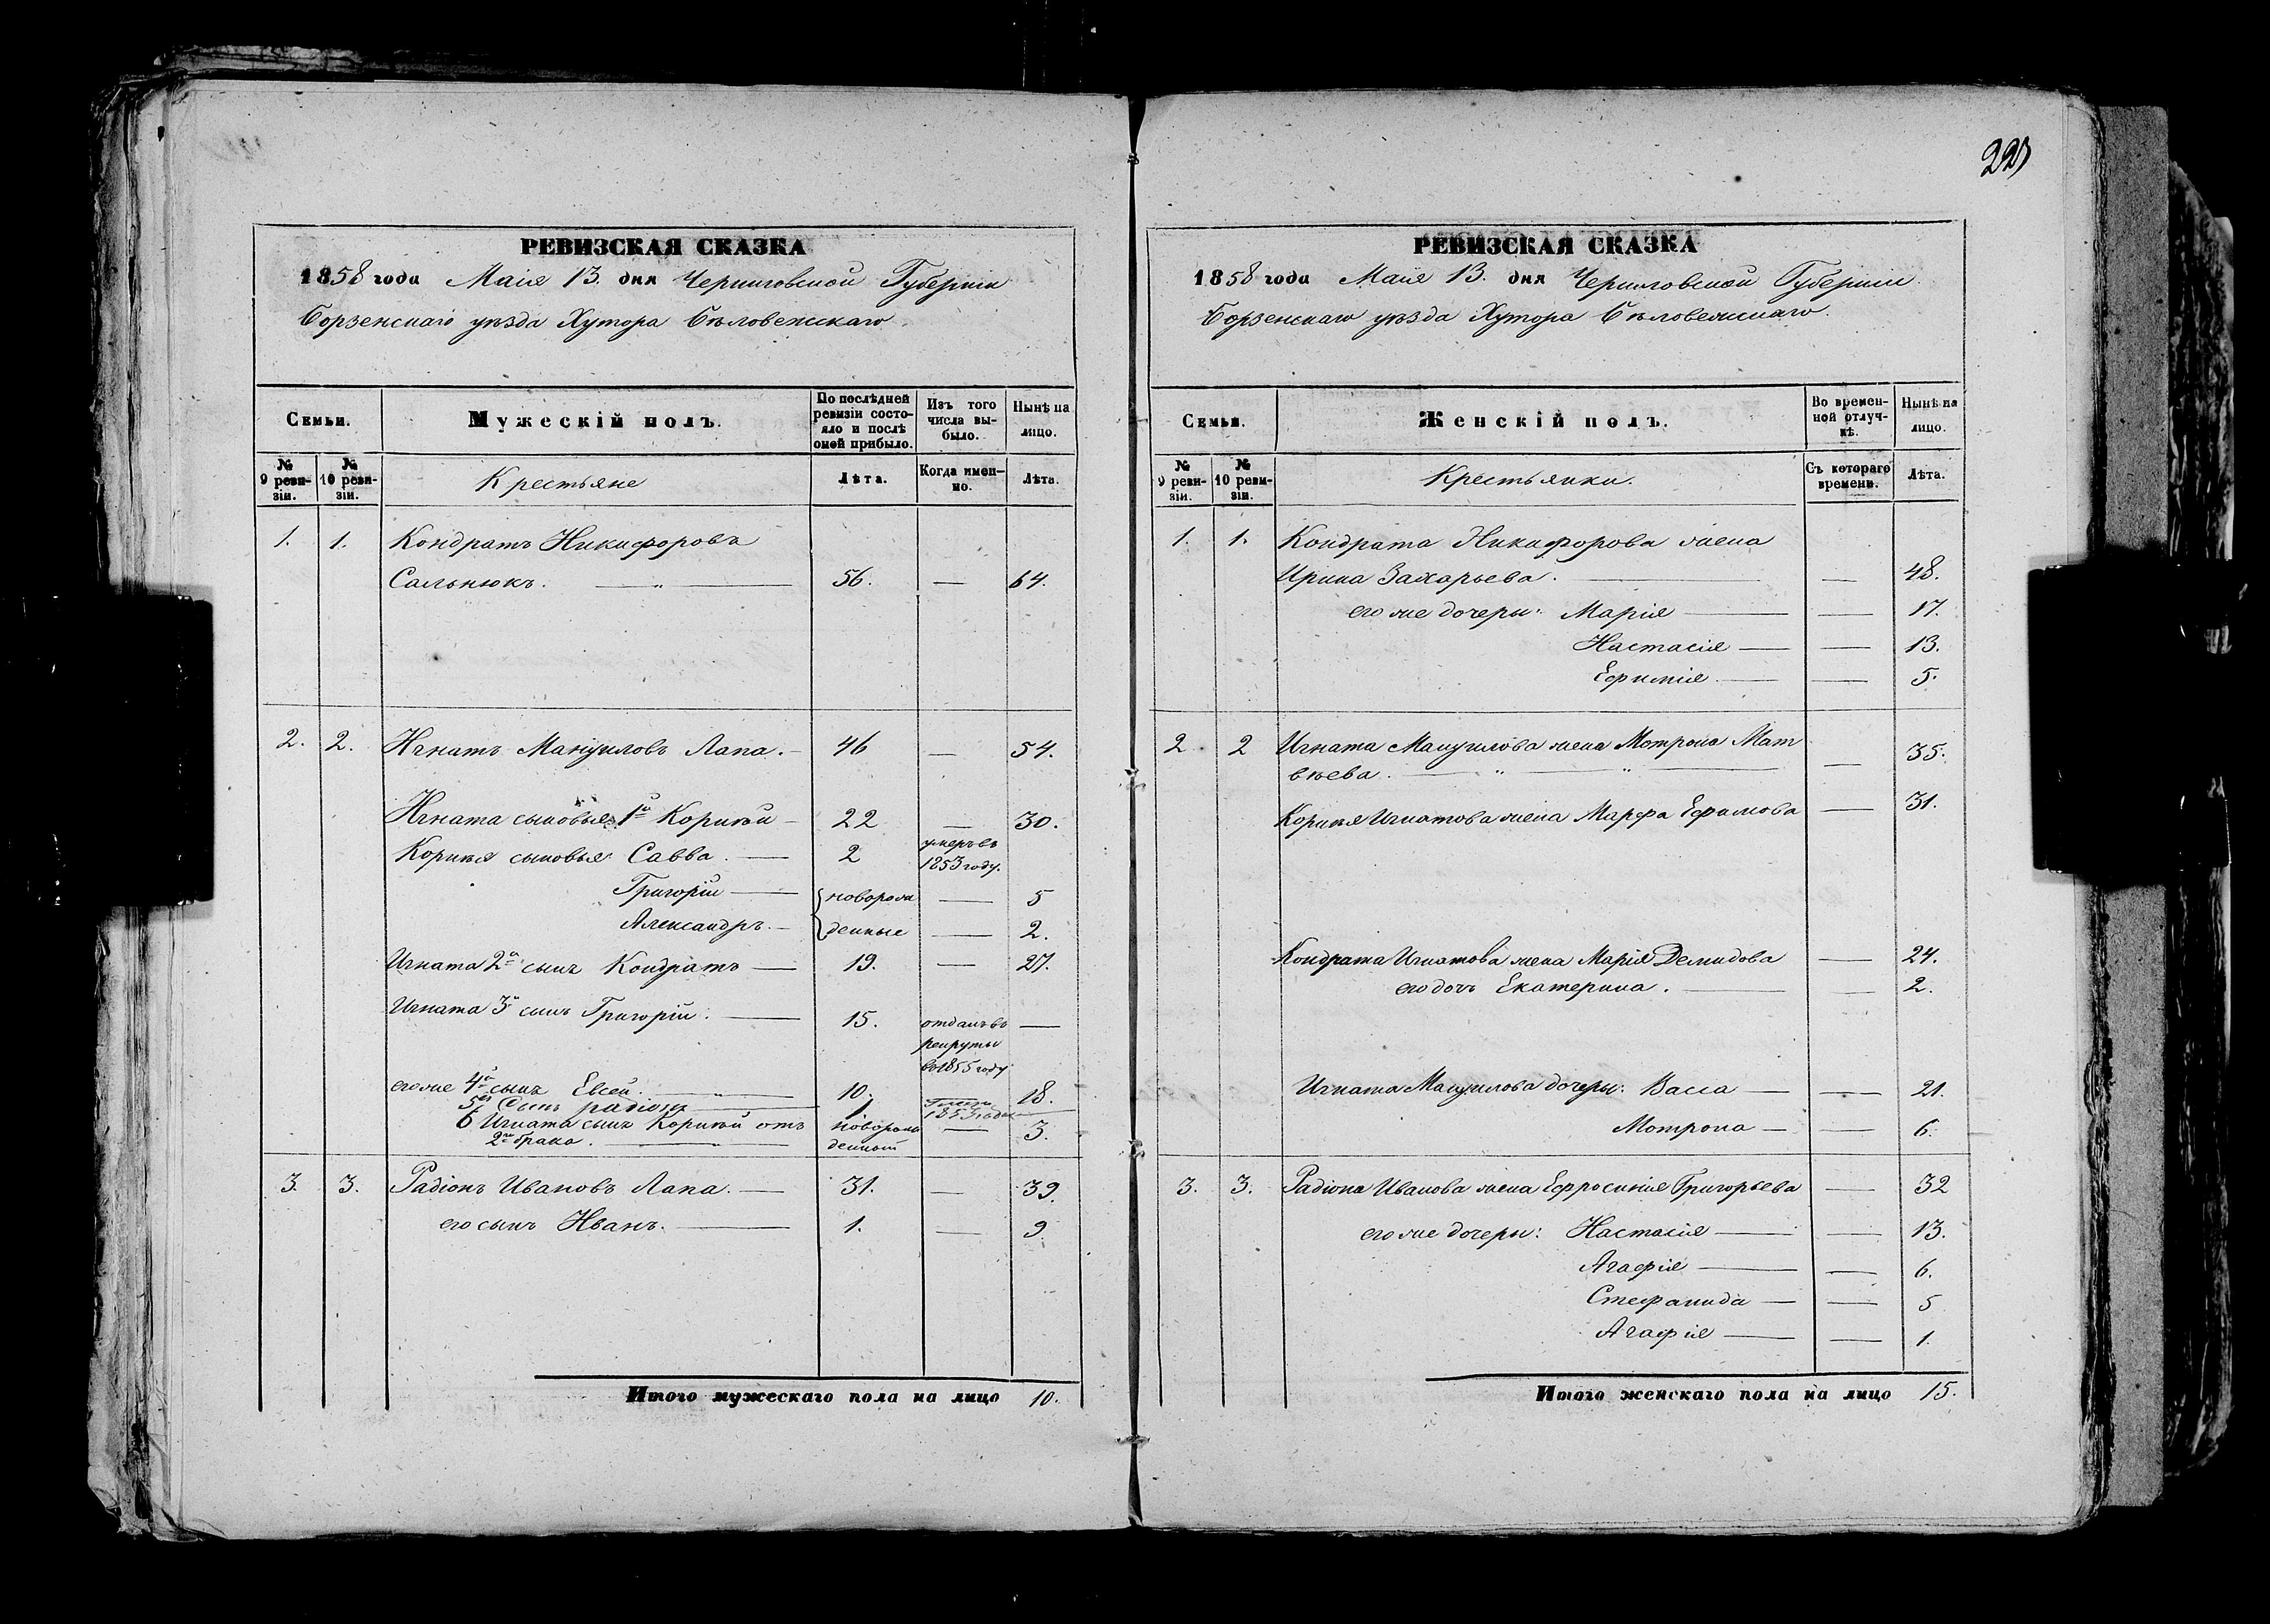 РЕВИЗСКАЯ СКАЗКА
1858 года Маія 13. дня Черниговской Губерніи
Борзенскаго уѣзда Хутора Бѣловежскаго
Семьи.
Мужескій полъ.
По послѣдней ревизіи состояло и послѣ оной прибыло.
Изъ того числа выбыло.
Нынѣ на лицо.
№ 9 ревизіи.
№ 10 ревизіи.
Крестьяне
Лѣта.
Когда именно.
Лѣта.
1. 1. Кондратъ Никифоровъ
Сальнюкъ. — „ — 56. — 64.
2. 2. Игнатъ Мануиловъ Лапа. — 46 — 54.
Игната сыновья 1й Корнѣй — 22 — 30.
Корнѣя сыновья Савва. — 2 умеръ въ 1853 году.
Григорій — новорож — 5
Александръ. — денные — 2.
Игната 2й сынъ Кондратъ — 19. — 27.
Игната 3й сынъ Григорій. — 15. отданъ въ —
рекруты
въ 1855 году
его же 4й сынъ Евсей. — „ — 10. 18.
5й Сынъ радіонъ — 1 1853 года —
6 Игната сынъ Корнѣй отъ новорож — 3.
2го брака. — „ — денный
3. 3. Радіонъ Ивановъ Лапа. — 31. — 39.
его сынъ Иванъ. — 1. — 9
Итого мужескаго пола на лицо 10.
227
РЕВИЗСКАЯ СКАЗКА
1858 года Маія 13. дня Черниговской Губерніи.
Борзенскаго уѣзда Хутора Бѣловежскаго.
Семьи.
Женскій полъ.
Во временной отлучкѣ.
Нынѣ на лицо.
№ 9 ревизіи.
№ 10 ревизіи.
Крестьянки.
Съ котораго времени.
Лѣта.
1. 1. Кондрата Никифорова жена
Ирина Захарьева. — — 48.
его же дочери: Марія — — 17.
Настасія — — 13.
Ефимія. — — 5.
2. 2 Игната Мануилова жена Мотрона Мат
вѣева. — „ — „ — — 35.
Корнѣя Игнатова жена Марфа Ефимова — 31.
Кондрата Игнатова жена Марія Демидова — 24.
его дочь Екатерина. — — 2.
Игната Мануилова дочери: Васса — — 21.
Мотрона — — 6.
3. 3. Радіона Иванова жена Ефросинія Григорьева — 32
его же дочери: Настасія — — 13.
Агафія — — 6.
Стефанида — — 5
Агафія — — 1.
Итого женскаго пола на лицо 15.